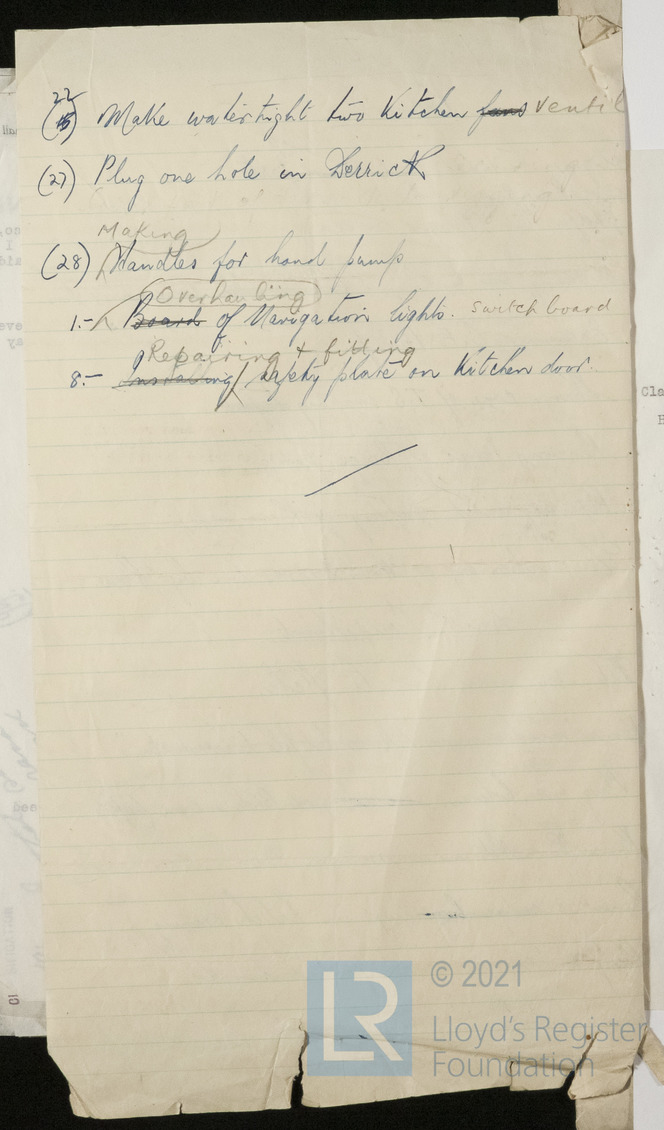 22
(15) Make watertight two Kitchen fans ventil
(27) Plug one hole in Derrick
Making
(28) Handles for hand pump
Overhauling
1.- Board of Navigation lights. switch board
Repairing & fitting
8:- Installing safety plate on Kitchen door.
Cla
H
LR
© 2021
Lloyd's Register
Foundation